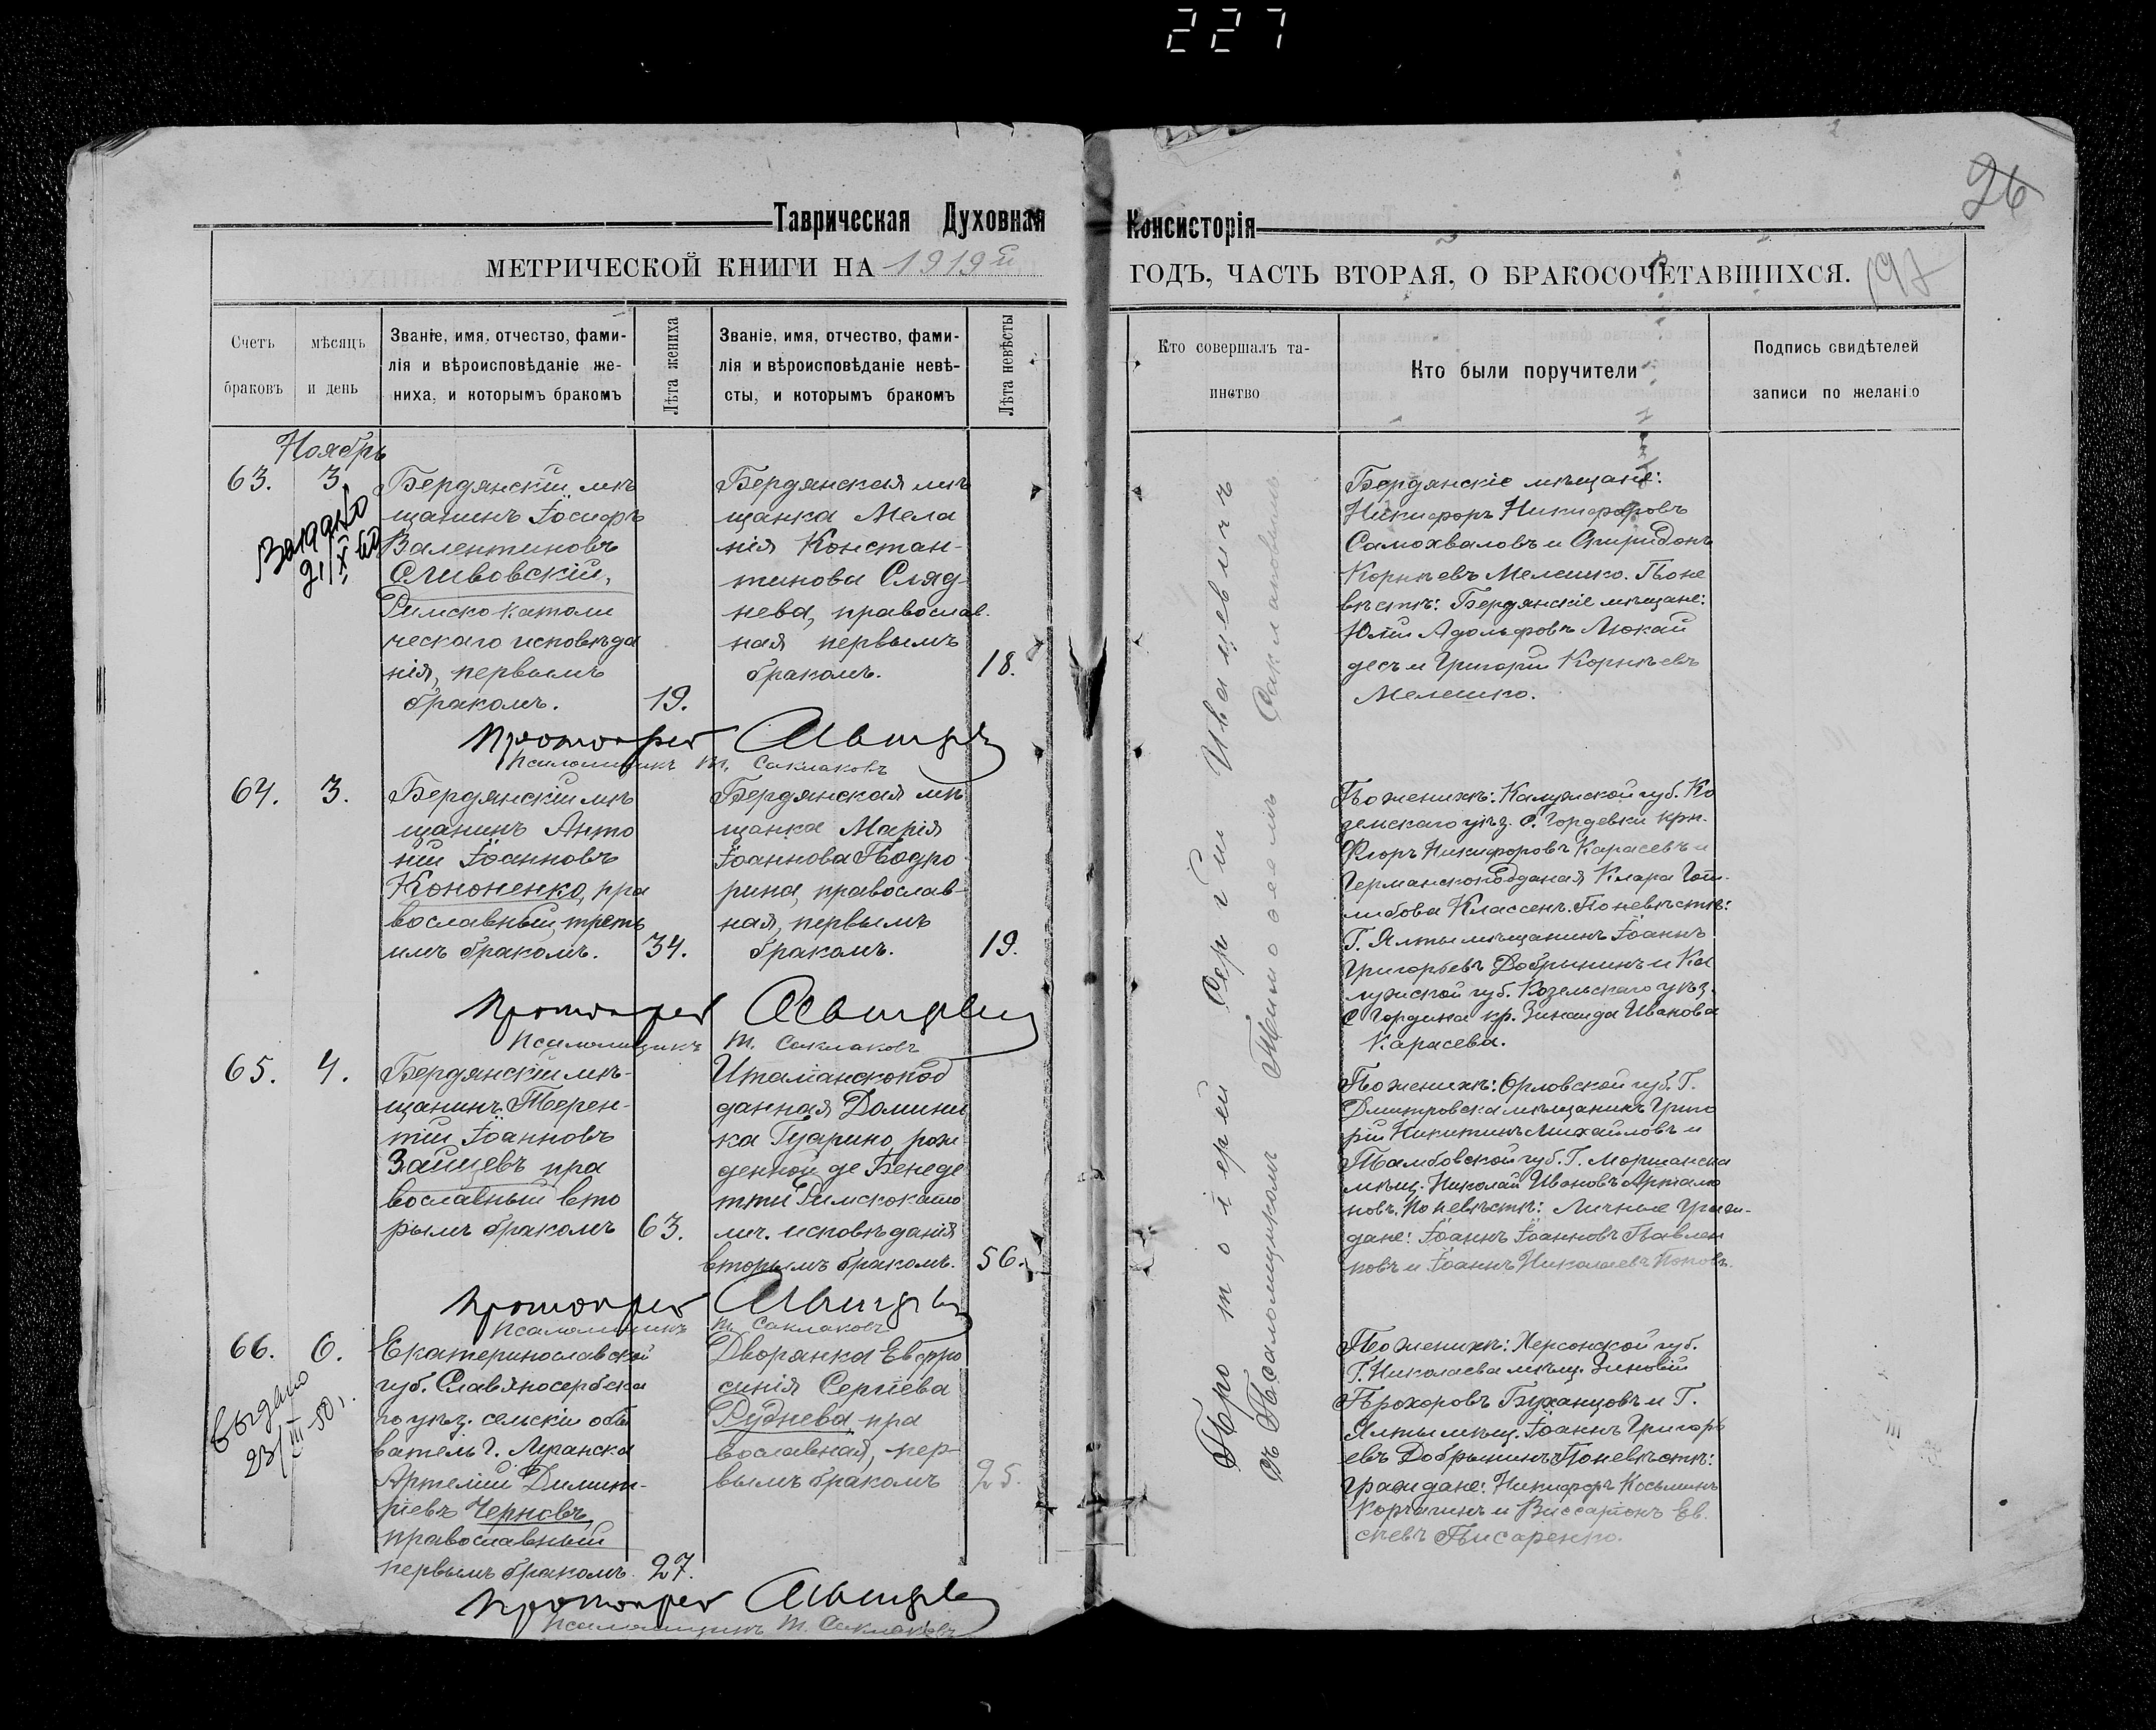 227
26
Таврическая Духовная Консисторія
МЕТРИЧЕСКОЙ КНИГИ НА 1919й ГОДЪ, ЧАСТЬ ВТОРАЯ, О БРАКОСОЧЕТАВШИХСЯ.
197
Счетъ
браковъ
мѣсяцъ
и день
Званіе, имя, отчество, фами-
лія и вѣроисповѣданіе же-
ниха, и которымъ бракомъ
Лѣта жениха
Званіе, имя, отчество, фами-
лія и вѣроисповѣданіе невѣ-
сты, и которымъ бракомъ
Лѣта невѣсты
Кто совершалъ та-
инство
Кто были поручители
Подпись свидѣтелей
записи по желанію
Ноябрь
63.
3.
Бердянскій мѣ
щанинъ Іосифъ
Валентиновъ
Сливовскій,
Римско католи
ческаго исповѣда
нія, первымъ
бракомъ.
19.
Бердянская мѣ
щанка Мела
нія Констан-
тинова Сляд-
нева, православ.
ная первымъ
бракомъ.
18.
Бердянскіе мѣщане:
Никифоръ Никифоровъ
Самохваловъ и Спиридонъ
Корнѣевъ Мелешко. По не
вѣстѣ: Бердянскіе мѣщане:
Юлій Адольфовъ Люкай
десъ и Григорій Корнѣевъ
Мелешко.
Протоіерей
Псаломщикъ Т. Саклаковъ
64.
3.
Бердянскій мѣ
щанинъ Анто
ній Іоанновъ
Кононенко, пра
вославный, треть
имъ бракомъ.
34.
Бердянская мѣ
щанка Марія
Іоаннова Подро
рина, православ-
ная, первымъ
бракомъ.
19.
По женихѣ: Калужской губ. Ко
земскаго уѣз. с. Гордевки крн.
Флоръ Никифоровъ Карасевъ и
Германскоподданая Клара Гот-
либова Классенъ. По невѣстѣ:
Г. Ялты мѣщанинъ Іоаннъ
Григорьевъ Добрынинъ и Ка
лужской губ. Козельскаго уѣз.
с Гордина кр. Зинаида Иванова
Карасева.
Протоіерей
Псаломщикъ Т. Саклаковъ
65.
4.
Бердянскій мѣ-
щанинъ Терен-
тій Іоанновъ
Зайцевъ пра
вославный вто
рымъ бракомъ
63.
Италіанскопод
данная Домини
ка Гуарино рож
денной де Бенеде
тти Римскокато
лич. исповѣданія
вторымъ бракомъ.
56.
По женихѣ: Орловской губ. Г.
Дмитровска мѣщанинъ Григо
рій Никитинъ Михайловъ и
Тамбовской губ. Г. Моршанска
мѣщ. Николай Ивановъ Артамо
новъ. По невѣстѣ: Личные Граж-
дане: Іоаннъ Іоанновъ Павлен
ковъ и Іоаннъ Николаевъ Поповъ.
Протоіерей
Псаломщикъ Т. Саклаковъ
66.
6.
Екатеринославской
губ. Славяносербска
го уѣз. сельскій обы
ватель г. Луганска
Артемій Димит-
ріевъ Черновъ
православный
первымъ бракомъ.
27.
Дворянка Евфро
синія Сергіева
Руднева пра
вославная, пер-
вымъ бракомъ
25.
По женихѣ: Херсонской губ.
Г. Николаева мѣщ. Зиновій
Прохоровъ Буханцовъ и Г.
Ялты мѣщ. Іоаннъ Григорь
евъ Добрынинъ. По невѣстѣ:
Граждане: Никифоръ Косьминъ
Корчагинъ и Виссаріонъ Ев.
сѣевъ Писаренко.
Протоіерей
Псаломщикъ Т. Саклаковъ
Выдано
21/X 60
Выдано
23/III-50 г.
Протоіерей Сергій Иванцевичъ
съ Псаломщикомъ Тимоѳеемъ Саклаковымъ